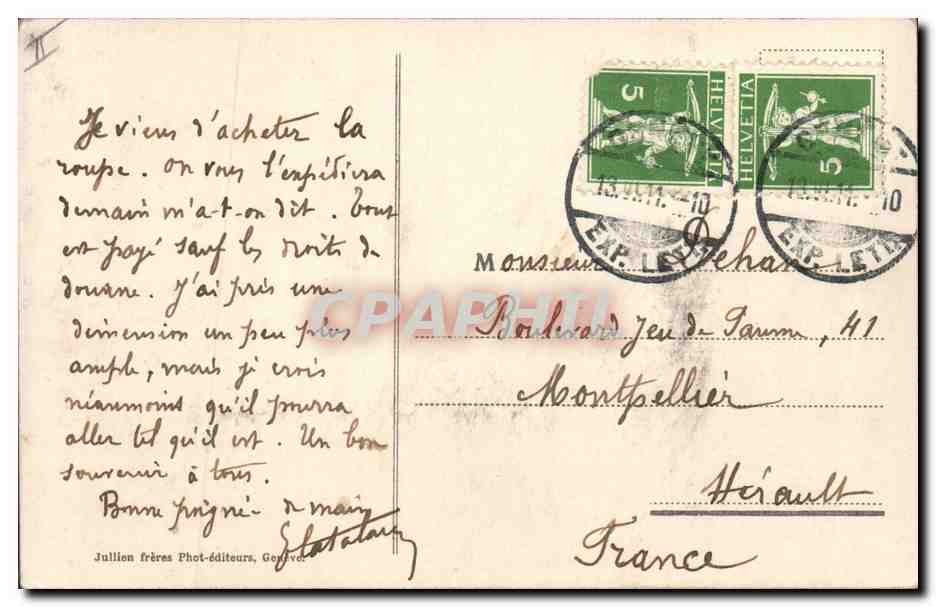 II
Je viens d'acheter la
roupe. On vous l'expédiera
demain m'a-t-on dit. Tout
est payé sauf les droits de
douane. J'ai pris une
dimension un peu plus
ample, mais je crois
néanmoins qu'il pourra
aller tel qu'il est. Un bon
souvenir à tous.
Bonne poignée de main
Jullien frères Phot-éditeurs, Genève.
5 HELVETIA
HELVETIA 5
13.VI.11. 10
EXP. LETTR
13.VI.11. 10
EXP. LETTR
Monsieur Jehan
Boulevard Jeu de Paume, 41
Montpellier
Hérault
France
CPAPHIL